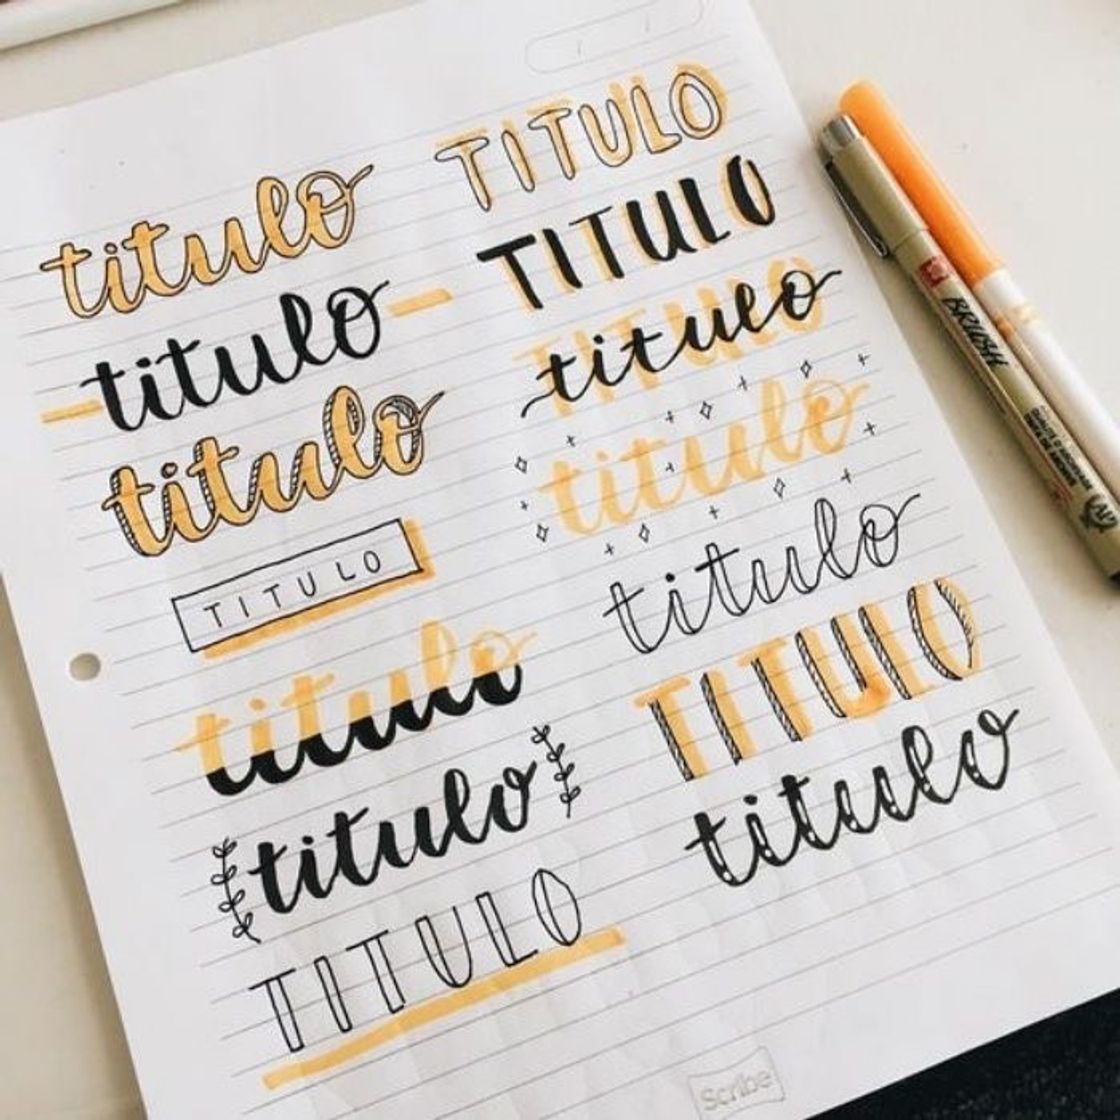 titulo
titulo
titulo
TITULO
titulo
titulo
TITULO
TITULO
TITULO
TITULO
titulo
titulo
titulo
TITULO
titulo
Scribe
BRUSH